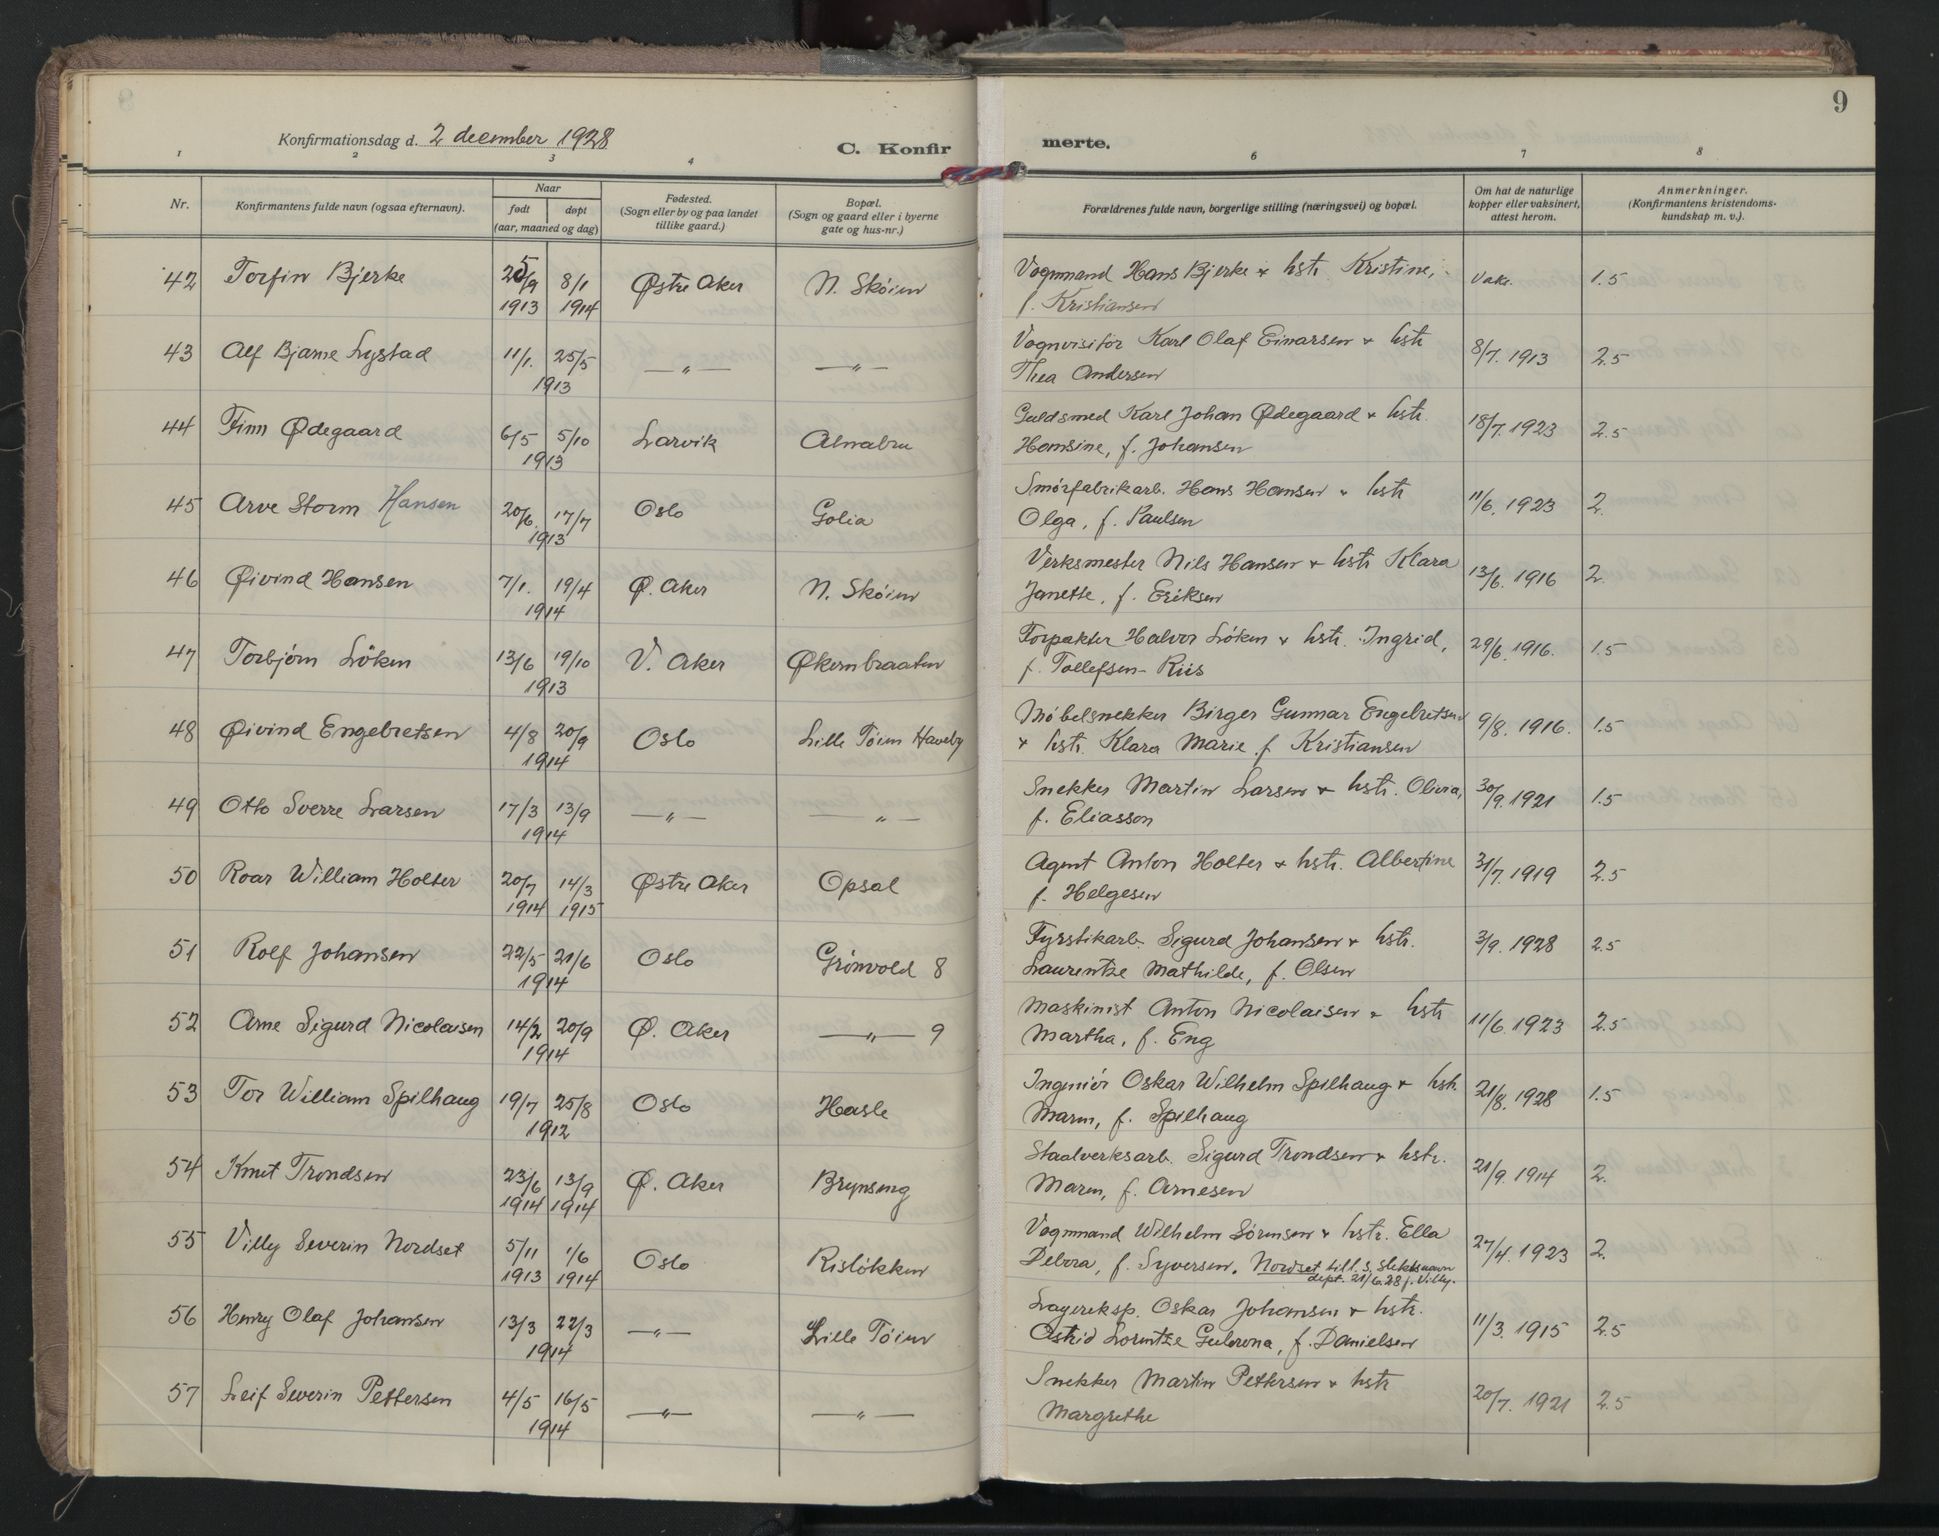 9
Konfirmationsdag d. 2 december 1928
C. Konfirmerte.
1 2 3 4 6 7 8
Nr. Konfirmantens fulde navn (ogsaa efternavn). Naar født døpt (aar, maaned og dag) Fødested. (Sogn eller by og paa landet tillike gaard.) Bopæl. (Sogn og gaard eller i byerne gate og hus-nr.) Forældrenes fulde navn, borgerlige stilling (næringsvei) og bopæl. Om hat de naturlige kopper eller vaksinert, attest herom. Anmerkninger. (Konfirmantens kristendoms-kundskap m. v.).
42 Torfin Bjerke 25/9 1913 8/1 1914 Østre Aker N. Skøien Vognmand Hans Bjerke & hstr. Kristine, Vaks. 1.5
f. Kristiansen
43 Alf Bjarne Lystad 11/1. 25/5 1913 —„— —„— Vognvisitør Karl Olaf Einarsen & hstr 8/7. 1913 2.5
Thea Andersen
44 Finn Ødegaard 6/5 5/10 1913 Larvik Alnabru Guldsmed Karl Johan Ødegaard & hstr. 18/7. 1923 2.5
Hansine, f. Johansen
45 Arve Storm Hansen 20/6. 17/7 1913 Oslo Golia Smørfabrikarb. Hans Hansen & hstr 11/6. 1923 2.
Olga, f. Paulsen
46 Øivind Hansen 7/1. 19/4 1914 Ø. Aker N. Skøien Verksmester Nils Hansen & hstr Klara 13/6. 1916 2.
Janette, f. Eriksen
47 Torbjørn Løken 13/6 19/10 1913 V. Aker Økernbraaten Forpakter Halvor Løken & hstr. Ingrid, 29/6. 1916. 1.5
f. Tollefsen-Riis
48 Øivind Engebretsen 4/8 20/9 1914 Oslo Lille Tøien Haveby Møbelsnekker Birger Gunnar Engebretsen 9/8. 1916. 1.5
& hstr. Klara Marie f. Kristiansen
49 Otto Sverre Larsen 17/3 13/9 1914 —„— —„— Snekker Martin Larsen & hstr. Olivia, 30/9. 1921 1.5
f. Eliasson
50 Roar William Holter 20/7 1914 14/3 1915 Østre Aker Opsal Agent Anton Holter & hstr. Albertine 31/7. 1919 2.5
f. Helgesen
51 Rolf Johansen 22/5 21/6 1914 Oslo Grønvold 8 Fyrstikarb. Sigurd Johansen & hstr. 3/9. 1928 2.5
Laurentze Mathilde, f. Olsen
52 Arne Sigurd Nicolaisen 14/2 20/9 1914 Ø. Aker —„— 9 Maskinist Anton Nicolaisen & hstr 11/6. 1923 2.5
Martha, f. Eng
53 Tor William Spilhaug 19/7 25/8 1912 Oslo Hasle Ingeniør Oskar Wilhelm Spilhaug & hstr. 21/8. 1928 1.5
Maren, f. Spilhaug
54 Knut Trondsen 23/6 1914 13/9 1914 Ø. Aker Brynseng Staalverksarb. Sigurd Trondsen & hstr. 21/9. 1914 2.
Maren, f. Arnesen
55 Villy Severin Nordset 5/11 1913 1/6 1914 Oslo Risløkken Vognmand Wilhelm Sørensen & hstr. Ella 27/4. 1923 2.
Debora, f. Syversen. Nordset till. s. slektsnavn
dept. 21/6.28 f. Villy.
56 Henry Olaf Johansen 13/3 22/3 1914 —„— Lille Tøien Lagereksp. Oskar Johansen & hstr. 11/3. 1915 2.5
Astrid Lorentze Gulrona, f. Danielsen
57 Leif Severin Pettersen 4/5 16/5 1914 —„— —„— Snekker Martin Pettersen & hstr 20/7. 1921 2.5
Margrethe